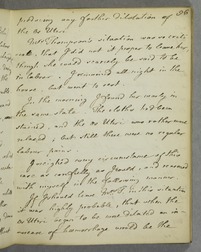 96
producing any farther dilatation of
the os Uteri.
Mrs Thompson's situation was so criti-
cal, that I did not it proper to leave her,
though she could scarcely be said to be
in labour. I remained all night in the
house, but went to rest.
In the morning I found her nearly in
the same state. The cloths had been
stained, and the os Uteri was rather more
relaxed, but still there were no regular
labour pains.
I weighed every circumstance of this
case as carefully as I could, and reasoned
with myself in the following manner
If I should leave Mrs T. in this situation
it was highly probable, that when the
os Uteri began to be much dilated an in-
crease of hæmorrhage would be the